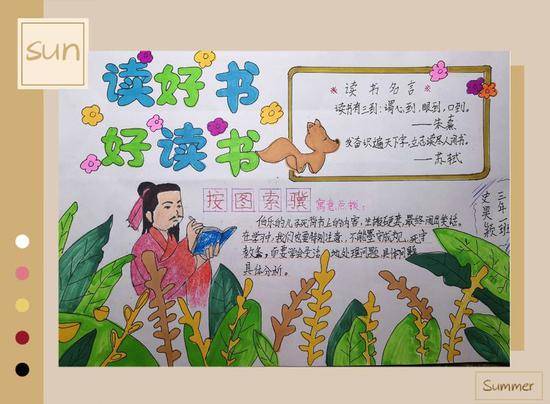 sun
读好书
好读书
读书名言
读书有三到:谓心到,眼到,口到。
——朱熹
发奋识遍天下字,立志读尽人间书。
——苏轼
按图索骥 寓意点拨:
伯乐的儿子死背书上的内容,生搬硬套,最终闹出笑话。
在学习中,我们也要特别注意,不能墨守成规、死守
教条,而要学会灵活地处理问题,具体问题
具体分析。
三年一班
史昊颖
Summer